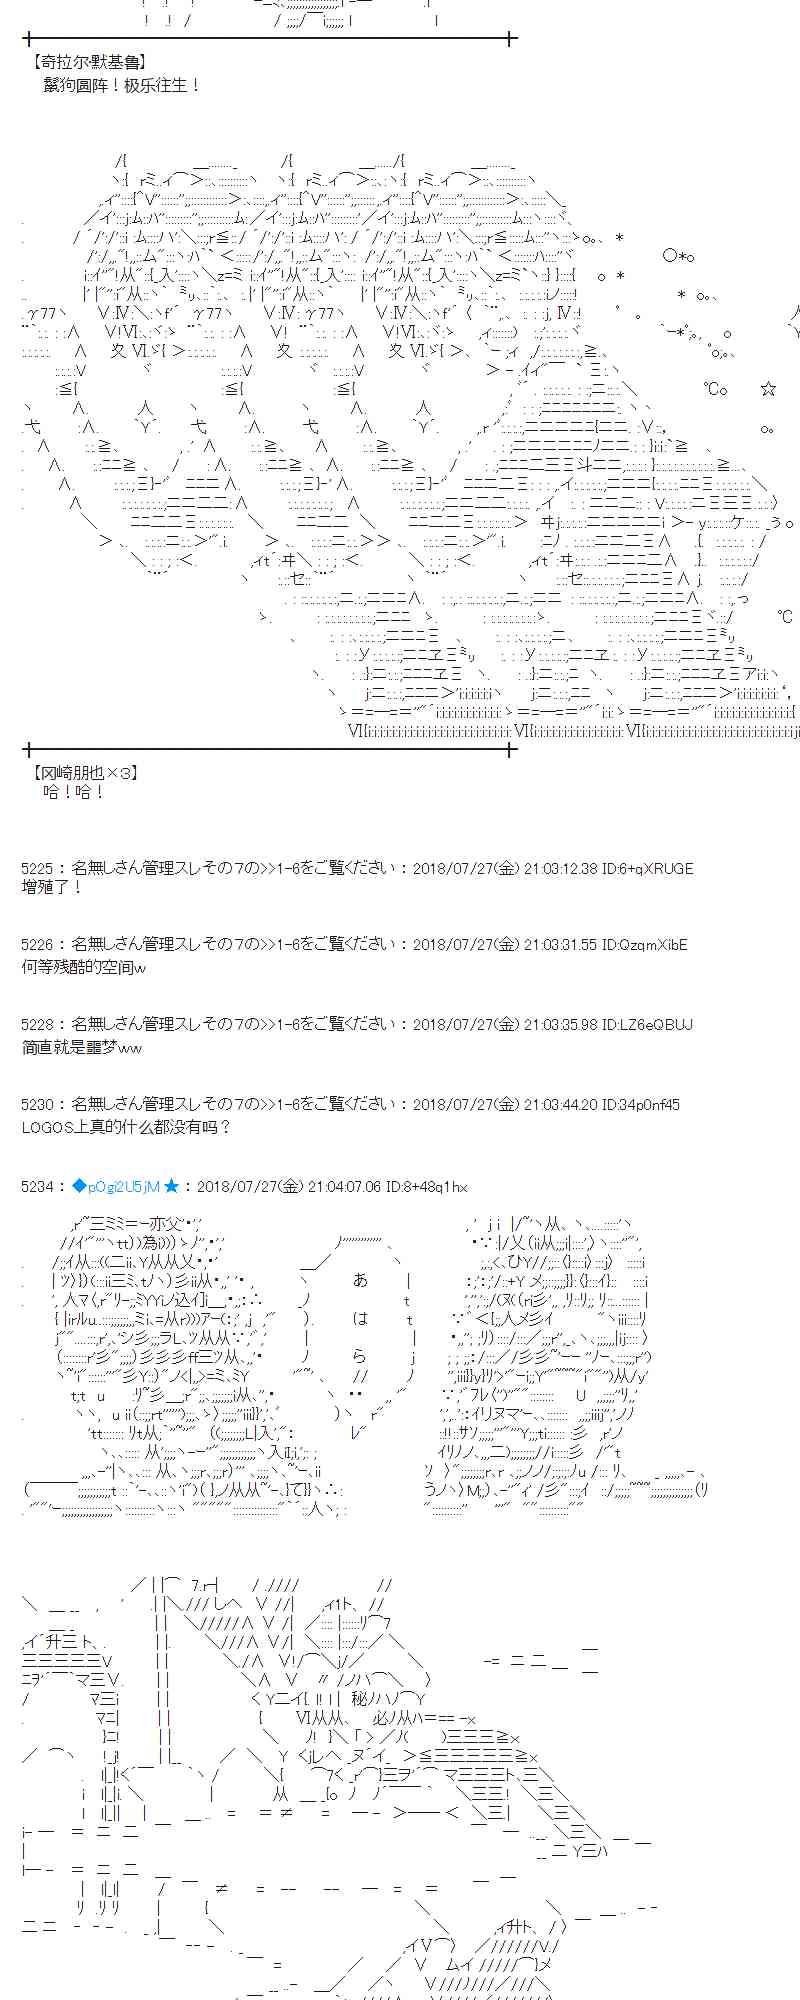 【奇拉尔·默基鲁】
鬣狗圆阵！极乐往生！
【冈崎朋也×３】
哈！哈！
5225 ： 名無しさん管理スレその７の>>1-6をご覧ください ： 2018/07/27(金) 21:03:12.38 ID:6+qXRUGE
增殖了！
5226 ： 名無しさん管理スレその７の>>1-6をご覧ください ： 2018/07/27(金) 21:03:31.55 ID:QzqmXibE
何等残酷的空间w
5228 ： 名無しさん管理スレその７の>>1-6をご覧ください ： 2018/07/27(金) 21:03:35.98 ID:LZ6eQBUJ
简直就是噩梦ww
5230 ： 名無しさん管理スレその７の>>1-6をご覧ください ： 2018/07/27(金) 21:03:44.20 ID:34p0nf45
LOGOS上真的什么都没有吗？
5234 ： ◆pOgi2U5jM ★ ： 2018/07/27(金) 21:04:07.06 ID:8+48q1hx
あ
は
ら